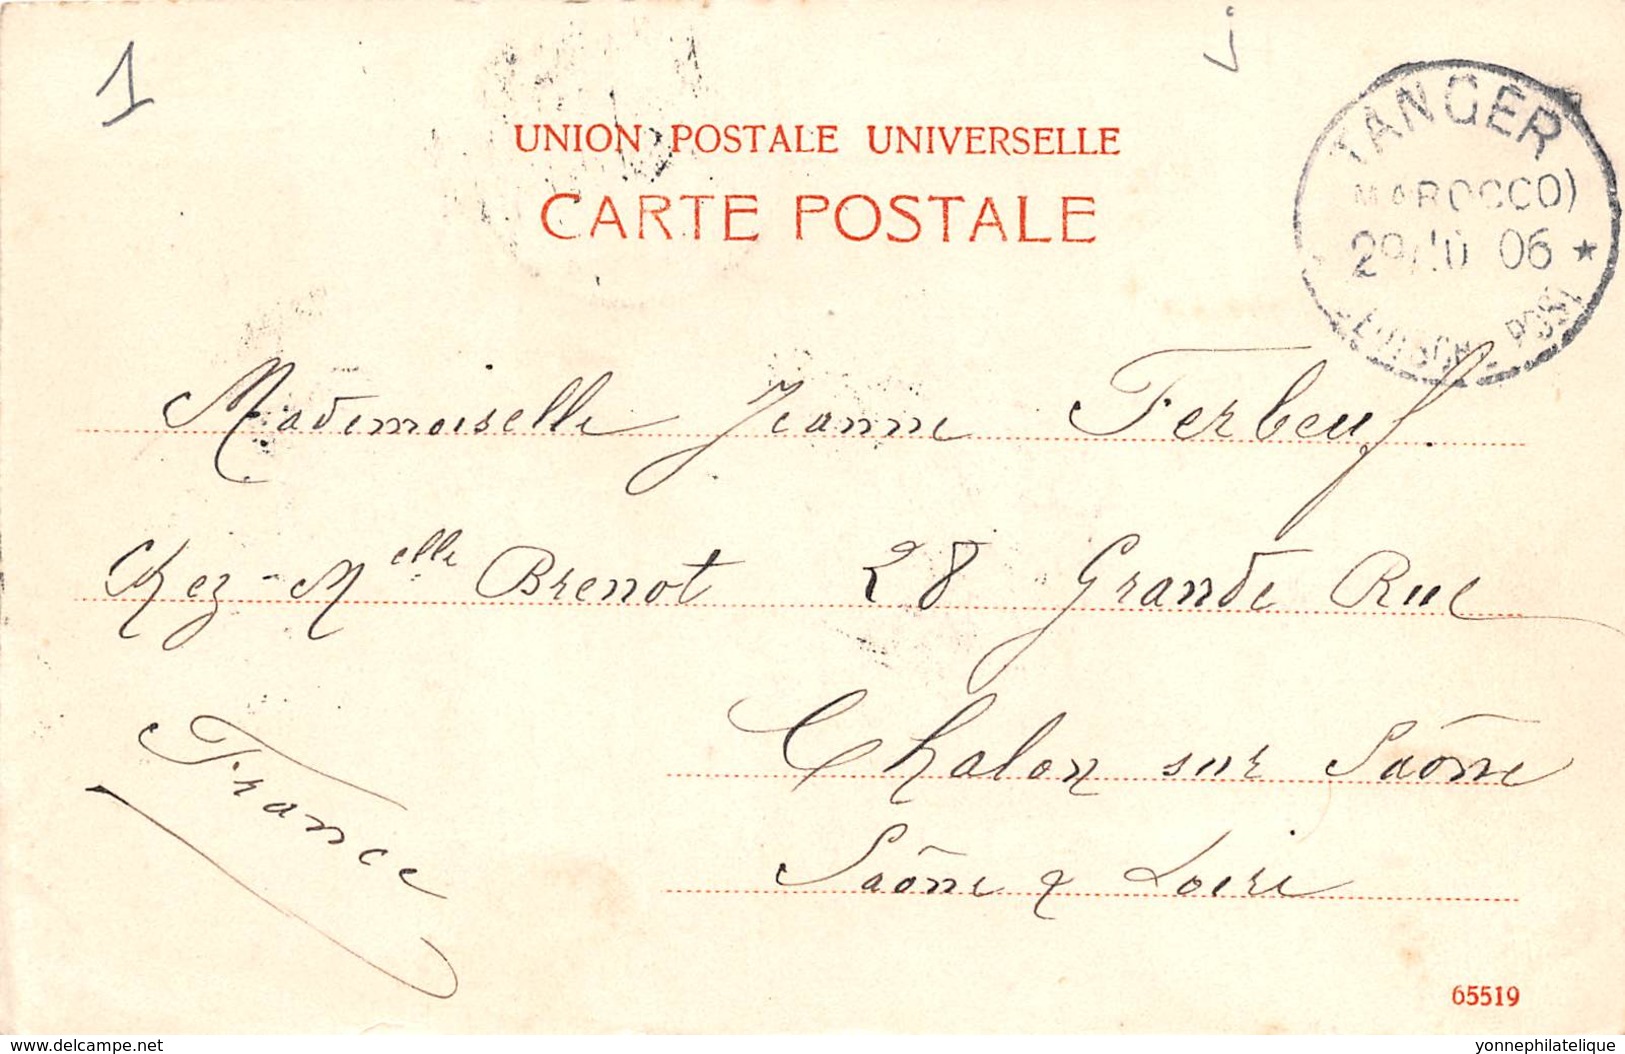 1
UNION POSTALE UNIVERSELLE
CARTE POSTALE
TANGER
MAROCCO)
29/10 06 *
POST
Mademoiselle Jeanne Ferbeuf.
Chez Melle Brenot 28 Grande Rue
Chalon sur Saône
Saône & Loire
France
65519
www.delcampe.net
yonnephilatelique